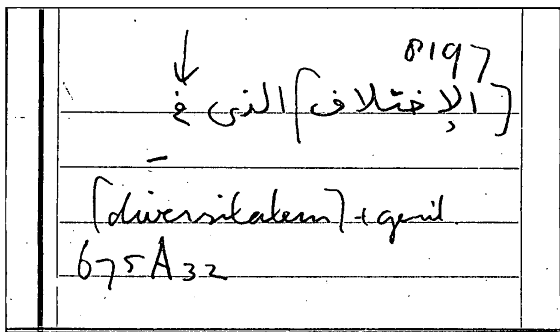 8197
[الإختلاف] الذى فى
[diversitatem] + genit.
675A32